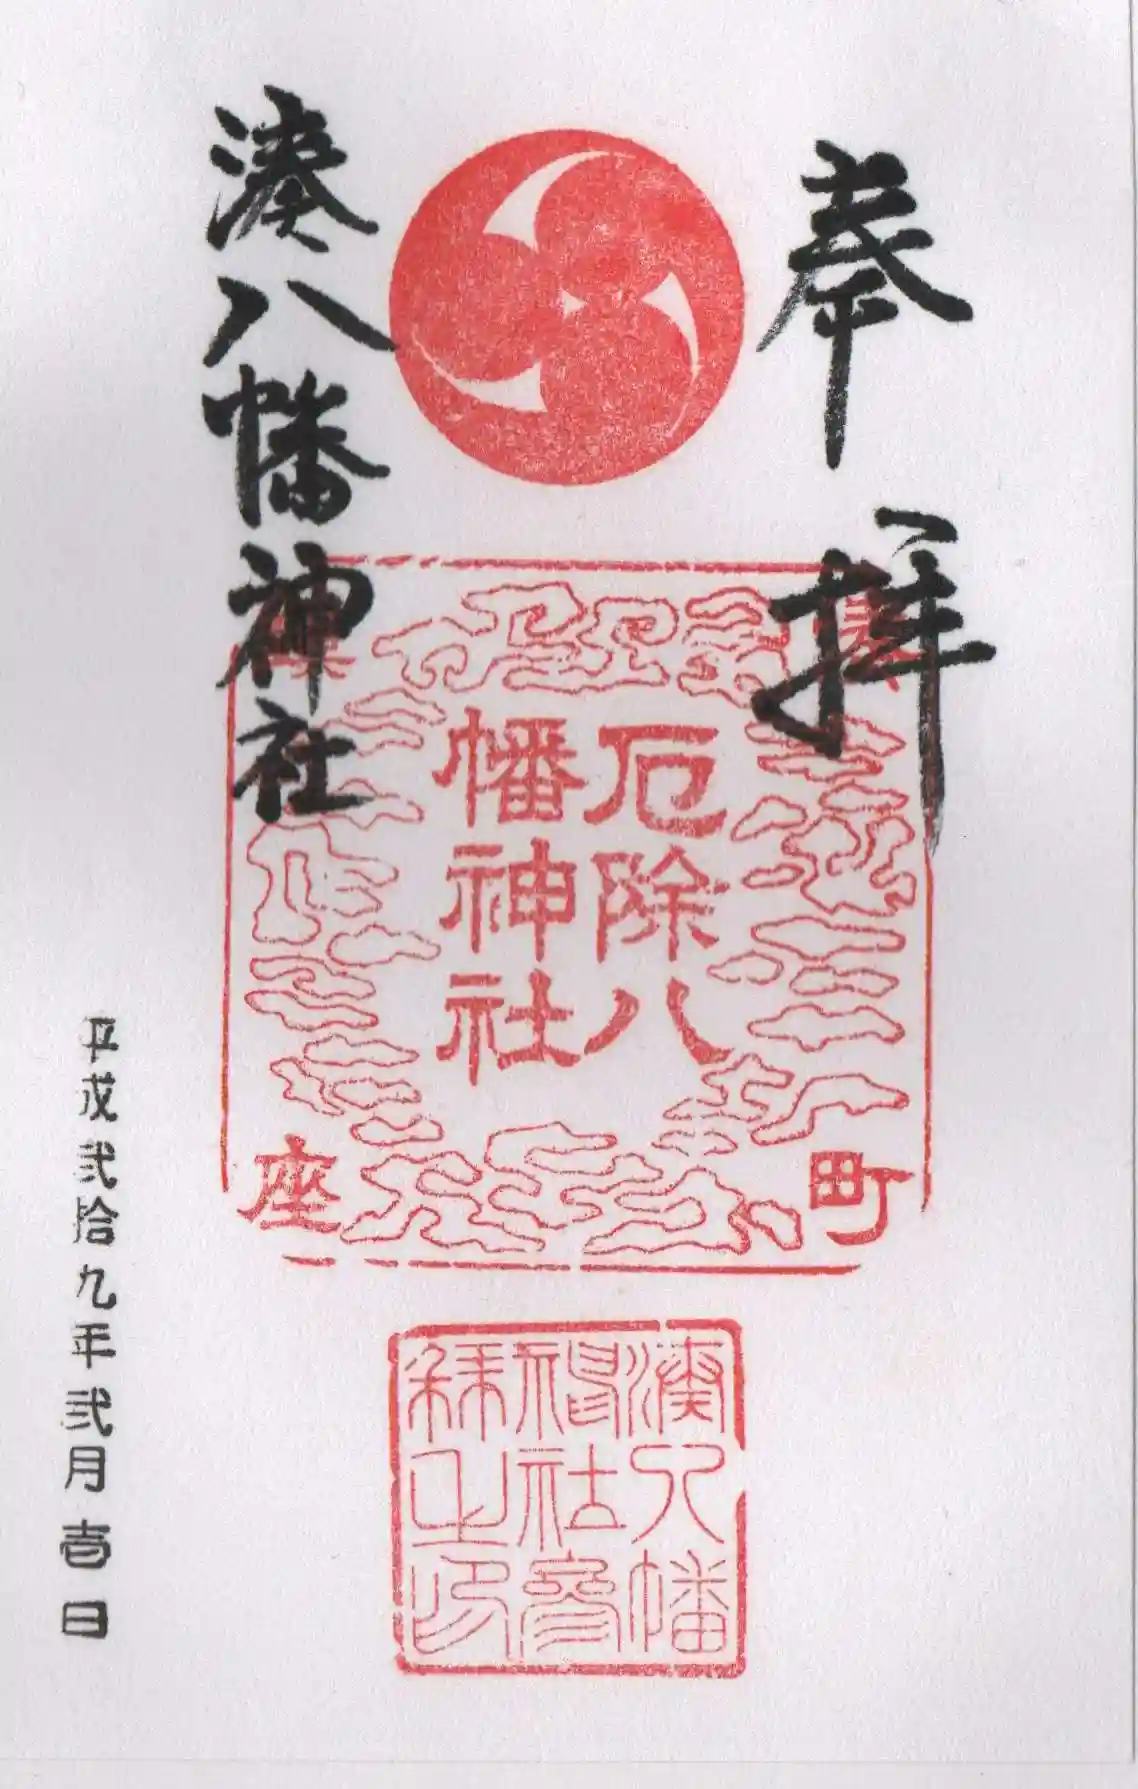 奉拝
湊八幡神社
厄除八
幡神社
町
座
湊八幡
神社参
拝之印
平成弐拾九年弐月壱日